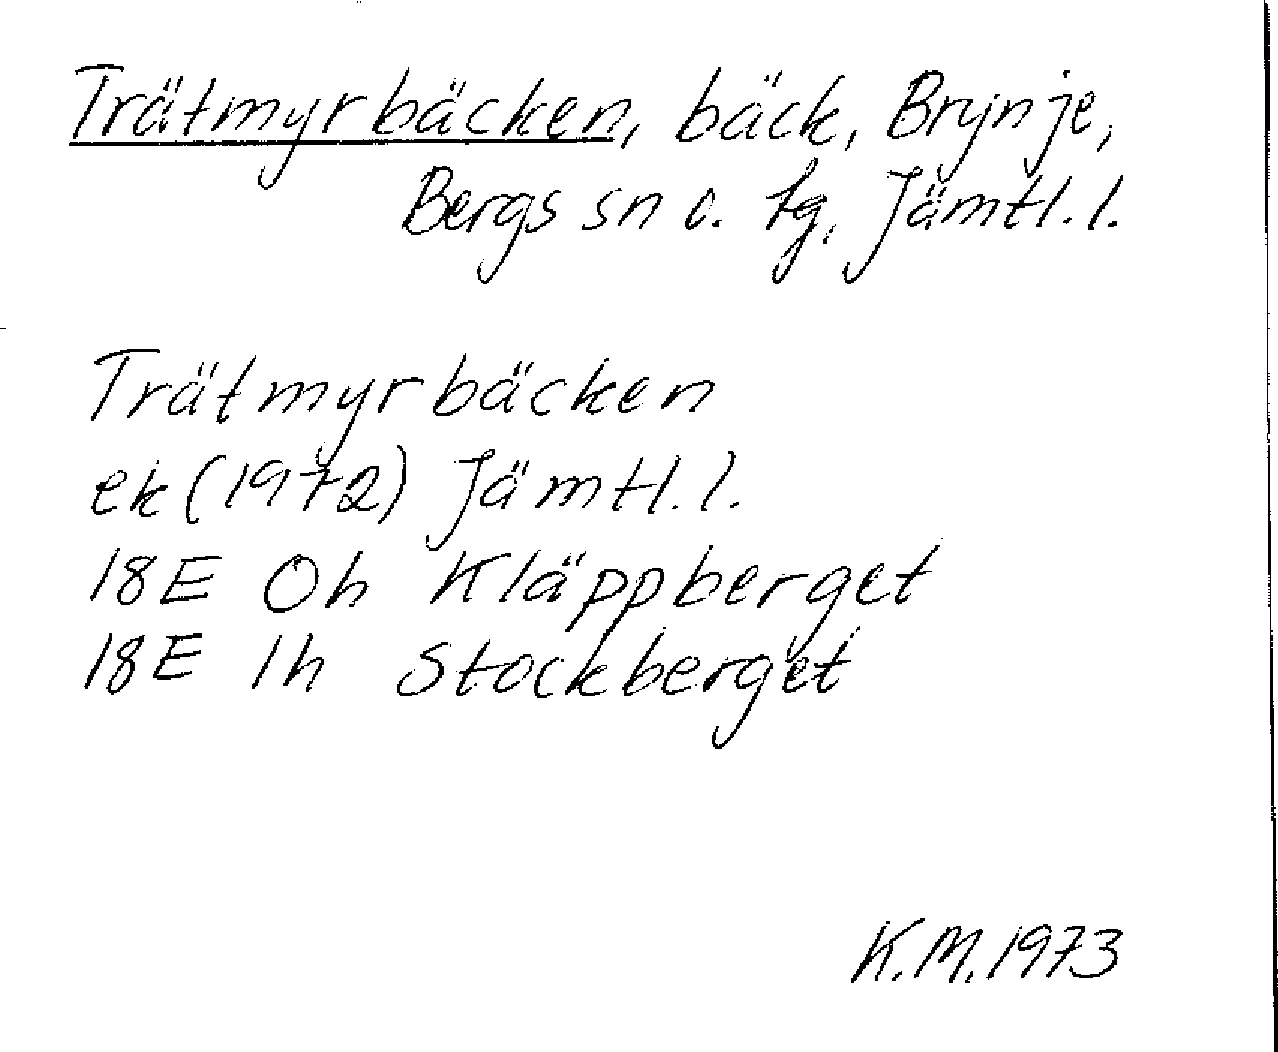 Trätmyrbäcken, bäck, Brynje,
Bergs sn o. tg, Jämtl. l.
Trätmyrbäcken
ek (1972) Jämtl. l.
18E 0h Kläppberget
18E 1h Stockberget
K.M. 1973